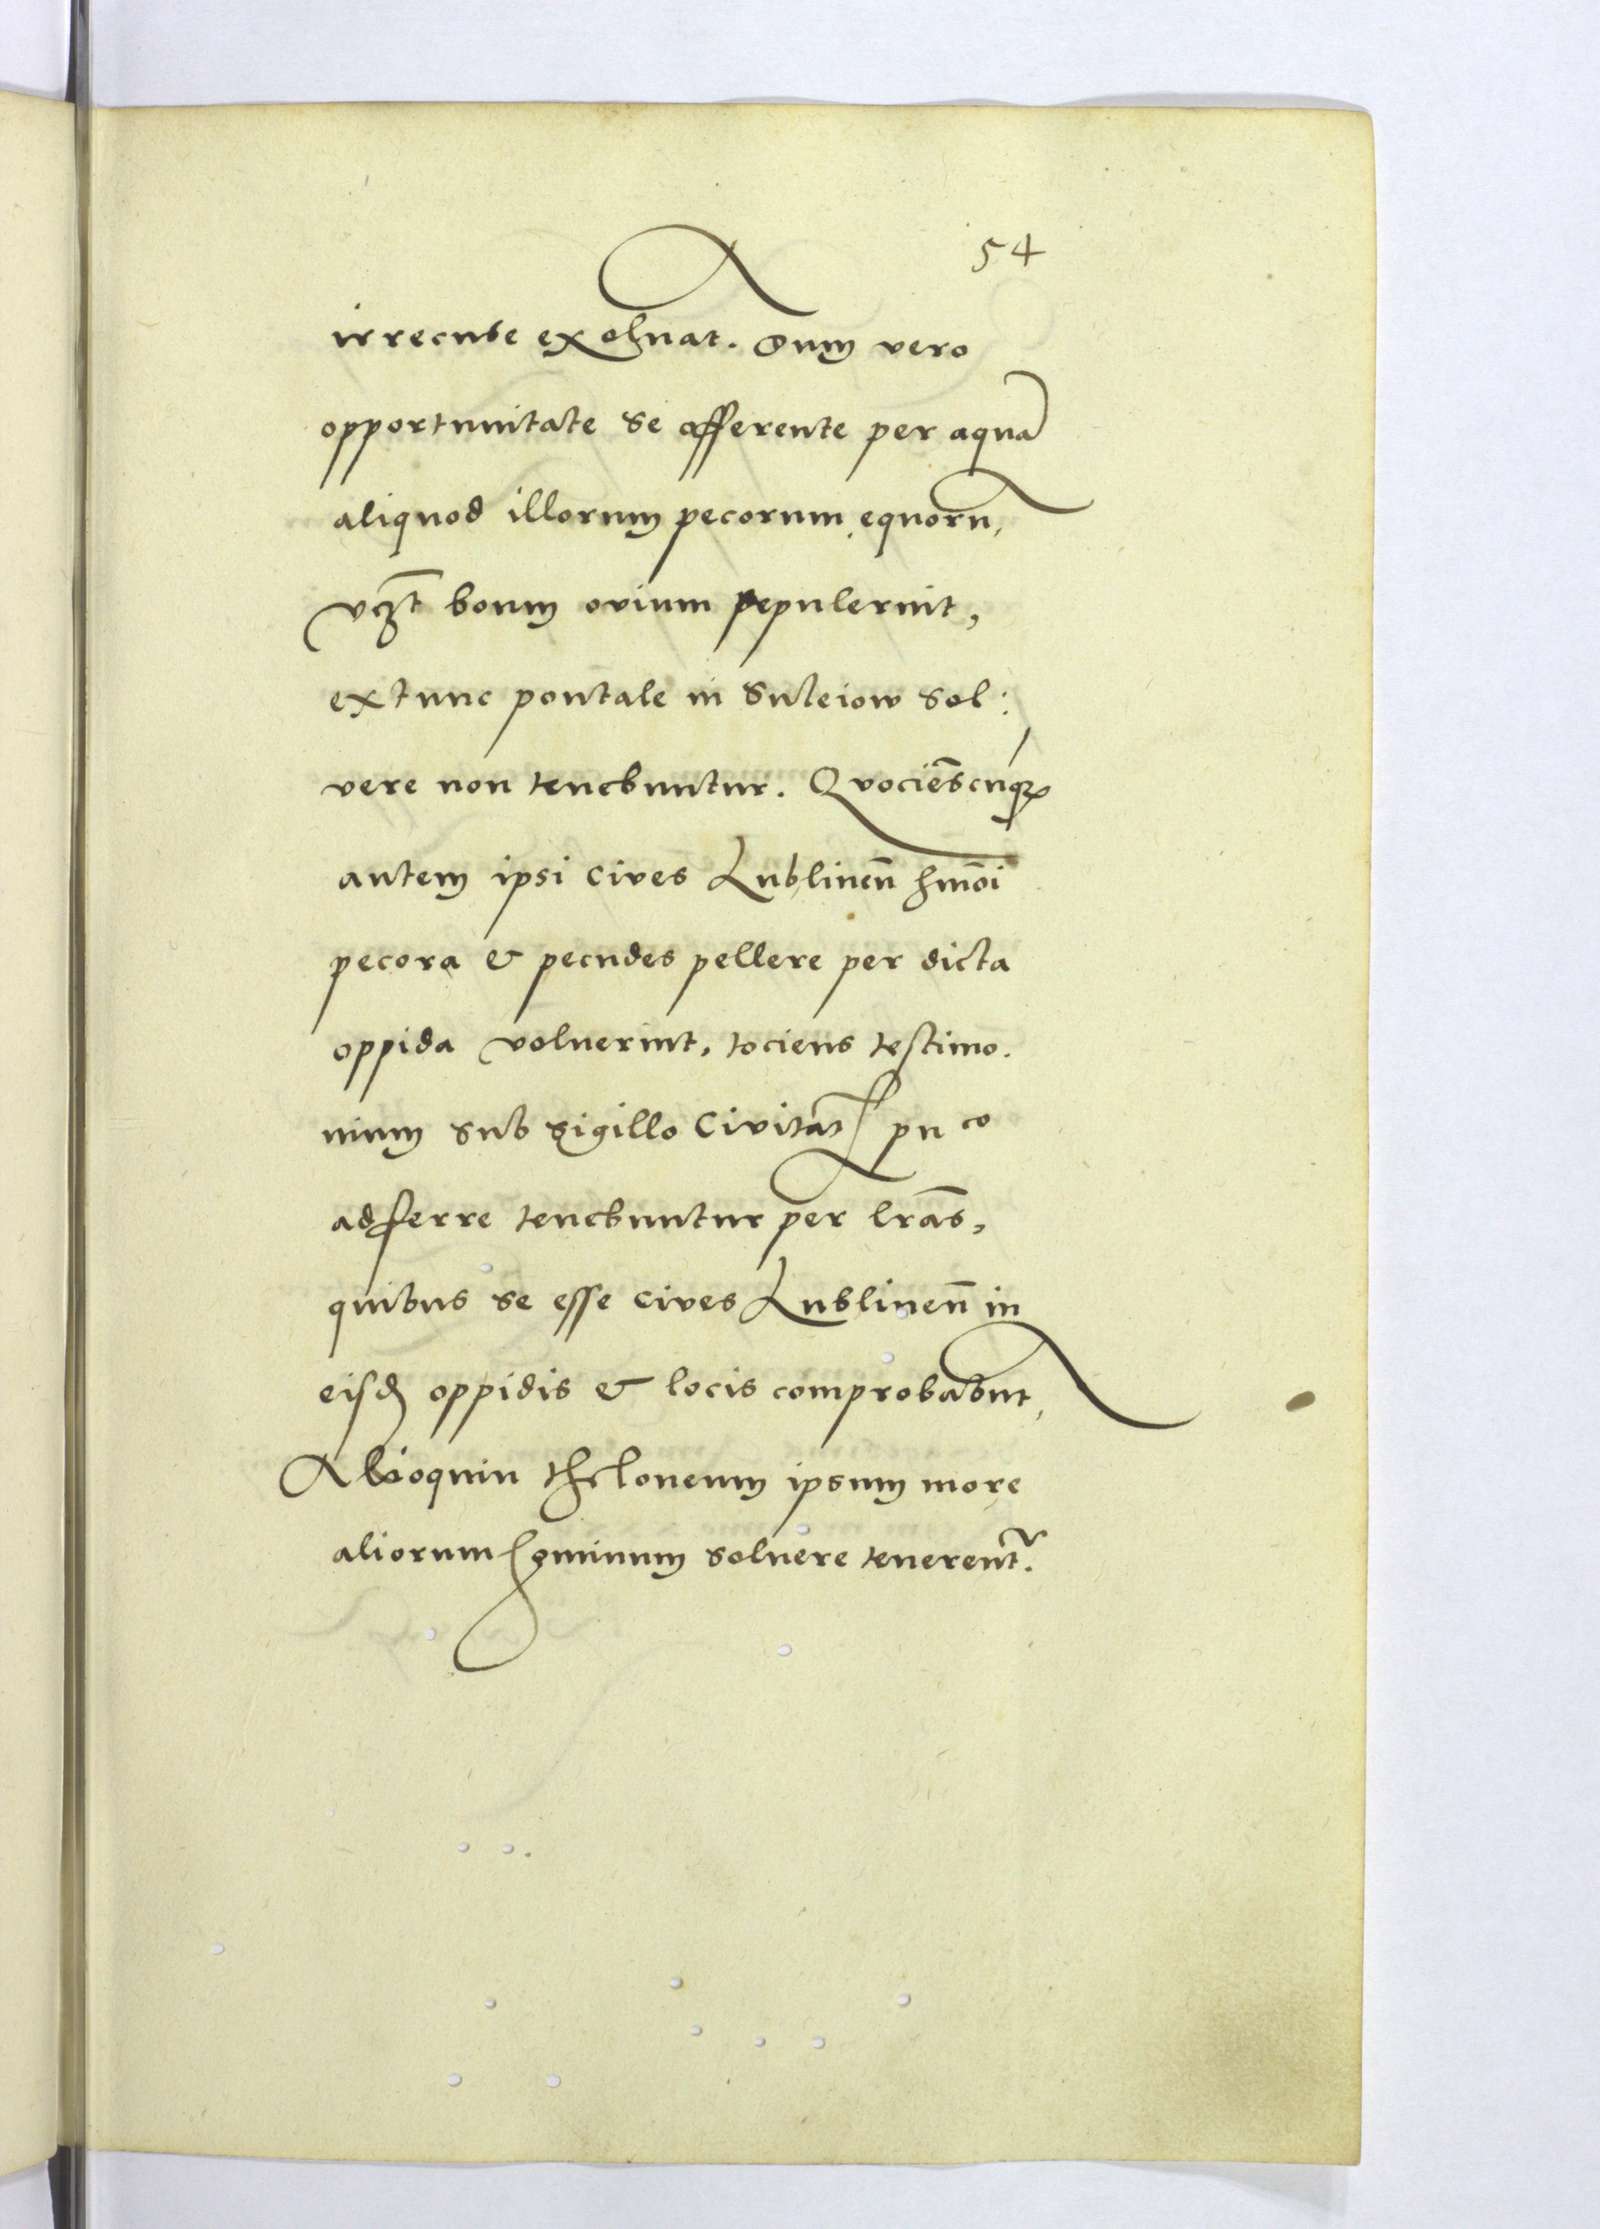 54
irrecuse exolvat. Dum vero
opportunitate se offerente per aquā
aliquod illorum pecorum equorū,
vꝫt boum ovium pepulerint,
extunc pontale in Suleiow sol:
vere non tenebuntur. Quociēscūqꝫ
autem ipsi cives Lublinen̄ hmōi
pecora & pecudes pellere per dicta
oppida voluerint, tociens testimo.
nium sub sigillo Civitat
adferre tenebuntur per lrās,
quibus se esse cives Lublinen̄ in
eisd oppidis & locis comprobabūt,
Alioquin theloneum ipsum more
aliorum hominum solvere tenerent.